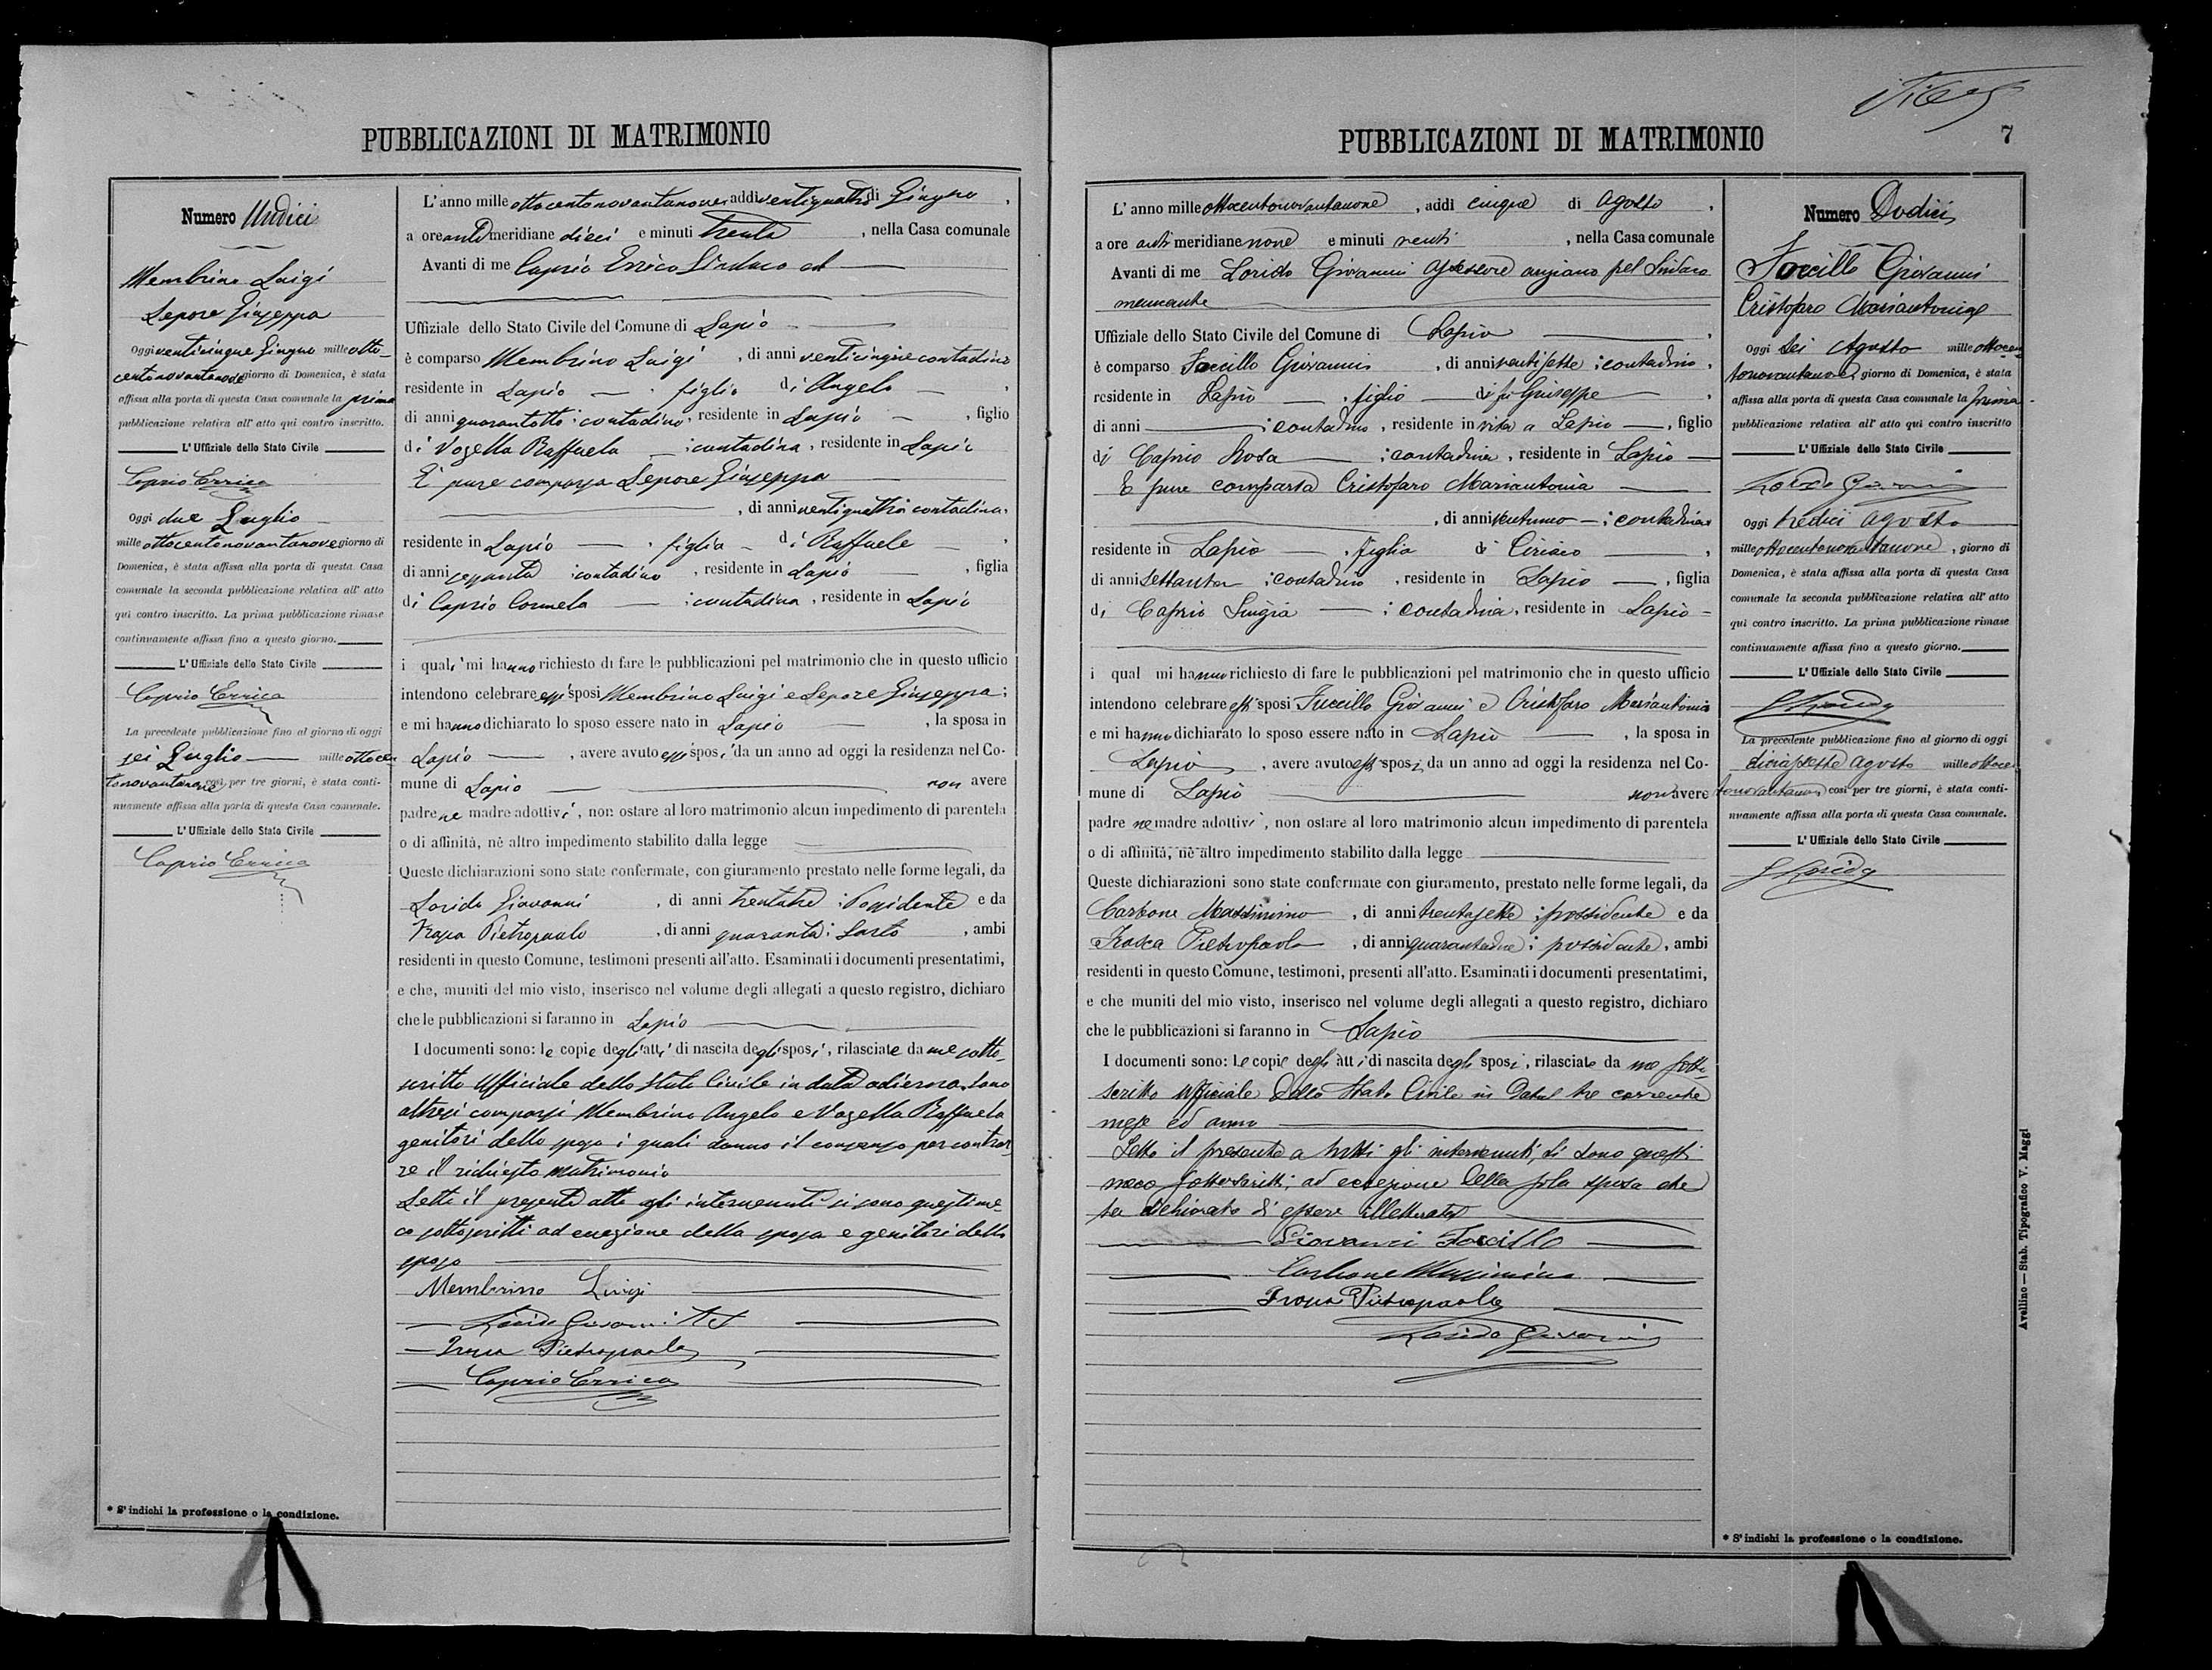 PUBBLICAZIONI DI MATRIMONIO
Numero Undici
Membrino Luigi
Lepore Giuseppa
Oggi venticinque Giugno mille otto-
centonovantanove giorno di Domenica, è stata
affissa alla porta di questa Casa comunale la prima
pubblicazione relativa all' atto qui contro inscritto.
L' Uffiziale dello Stato Civile
Caprio Errico
Oggi due Luglio
mille ottocentonovantanove giorno di
Domenica, è stata affissa alla porta di questa Casa
comunale la seconda pubblicazione relativa all' atto
qui contro inscritto. La prima pubblicazione rimase
continuamente affissa fino a questo giorno.
L' Uffiziale dello Stato Civile
Caprio Errico
La precedente pubblicazione fino al giorno di oggi
sei Luglio mille ottocen
tonovantanove così per tre giorni, è stata conti-
nuamente affissa alla porta di questa Casa comunale.
L' Uffiziale dello Stato Civile
Caprio Errico
* S' indichi la professione o la condizione.
L' anno mille ottocentonovantanove, addì ventiquattro di Giugno,
a ore anti meridiane dieci e minuti trenta, nella Casa comunale
Avanti di me Caprio Errico Sindaco ed
Uffiziale dello Stato Civile del Comune di Lapio
è comparso Membrino Luigi, di anni venticinque contadino
residente in Lapio, figlio di Angelo,
di anni quarantotto contadino, residente in Lapio, figlio
di Vozella Raffaela ; contadina, residente in Lapio
E' pure comparsa Lepore Giuseppa
, di anni ventiquattro contadina,
residente in Lapio, figlia di Raffaele,
di anni sessanta contadino, residente in Lapio, figlia
di Caprio Carmela ; contadina, residente in Lapio
i quali mi hanno richiesto di fare le pubblicazioni pel matrimonio che in questo ufficio
intendono celebrare essi sposi Membrino Luigi e Lepore Giuseppa;
e mi hanno dichiarato lo sposo essere nato in Lapio, la sposa in
Lapio, avere avuto essi sposi da un anno ad oggi la residenza nel Co-
mune di Lapio non avere
padre ne madre adottivi, non ostare al loro matrimonio alcun impedimento di parentela
o di affinità, nè altro impedimento stabilito dalla legge
Queste dichiarazioni sono state confermate, con giuramento prestato nelle forme legali, da
Lorido Giovanni, di anni trentatre ; Possidente e da
Trosa Pietropaolo, di anni quaranta ; Sarto, ambi
residenti in questo Comune, testimoni presenti all'atto. Esaminati i documenti presentatimi,
e che, muniti del mio visto, inserisco nel volume degli allegati a questo registro, dichiaro
che le pubblicazioni si faranno in Lapio
I documenti sono: le copie degli atti di nascita degli sposi, rilasciate da me sotto-
scritto Ufficiale dello Stato Civile in data odierna. Sono
altresì comparsi Membrino Angelo e Vozella Raffaela
genitori dello sposo i quali danno il consenso per contrar
re il richiesto matrimonio
Letto il presente atto agli intervenuti si sono questi me
co sottoscritti ad eccezione della sposa e genitori dello
sposo
Membrino Luigi
Lorido Giovanni
Pietropaolo
Caprio Errico
PUBBLICAZIONI DI MATRIMONIO
7
L' anno mille ottocentonovantanove, addì cinque di Agosto,
a ore anti meridiane nove e minuti venti, nella Casa comunale
Avanti di me Lorido Giovanni assessore anziano pel Sindaco
mancante
Uffiziale dello Stato Civile del Comune di Lapio,
è comparso Foccillo Giovanni, di anni ventisette ; contadino,
residente in Lapio, figlio di fu Giuseppe,
di anni ; contadino, residente in vita a Lapio, figlio
di Caprio Rosa ; contadina, residente in Lapio
E pure comparsa Cristofaro Mariantonia
, di anni ventuno ; contadina
residente in Lapio, figlia di Ciriaco,
di anni settanta ; contadino, residente in Lapio, figlia
di Caprio Luigia ; contadina, residente in Lapio
i qual mi hanno richiesto di fare le pubblicazioni pel matrimonio che in questo ufficio
intendono celebrare essi sposi Foccillo Giovanni e Cristofaro Mariantonia
e mi hanno dichiarato lo sposo essere nato in Lapio, la sposa in
Lapio, avere avuto essi sposi da un anno ad oggi la residenza nel Co-
mune di Lapio non avere
padre ne madre adottivi, non ostare al loro matrimonio alcun impedimento di parentela
o di affinità, nè altro impedimento stabilito dalla legge
Queste dichiarazioni sono state confermate con giuramento, prestato nelle forme legali, da
Carbone Massimino, di anni trentasette ; possidente e da
Pietropaolo, di anni quarantadue ; possidente, ambi
residenti in questo Comune, testimoni, presenti all'atto. Esaminati i documenti presentatimi,
e che muniti del mio visto, inserisco nel volume degli allegati a questo registro, dichiaro
che le pubblicazioni si faranno in Lapio
I documenti sono: le copie degli atti di nascita degli sposi, rilasciate da me sotto-
scritto Ufficiale dello Stato Civile in data tre corrente
mese ed anno
Letto il presente a tutti gli intervenuti, si sono questi
meco sottoscritti, ad eccezione della sola sposa che
ha dichiarato di essere illetterata
Giovanni Foccillo
Carbone Massimino
Pietropaolo
Lorido Giovanni
Numero Dodici
Foccillo Giovanni
Cristofaro Mariantonia
Oggi sei Agosto mille ottocen
tonovantanove, giorno di Domenica, è stata
affissa alla porta di questa Casa comunale la prima
pubblicazione relativa all' atto qui contro inscritto
L' Uffiziale dello Stato Civile
Lorido Giovanni
Oggi tredici Agosto
mille ottocentonovantanove, giorno di
Domenica, è stata affissa alla porta di questa Casa
comunale la seconda pubblicazione relativa all' atto
qui contro inscritto. La prima pubblicazione rimase
continuamente affissa fino a questo giorno.
L' Uffiziale dello Stato Civile
G Lorido
La precedente pubblicazione fino al giorno di oggi
diciassette Agosto mille ottocen
tonovantanove così per tre giorni, è stata conti-
nuamente affissa alla porta di questa Casa comunale.
L' Uffiziale dello Stato Civile
G Lorido
* S' indichi la professione o la condizione.
Avellino — Stab. Tipografico V. Maggi